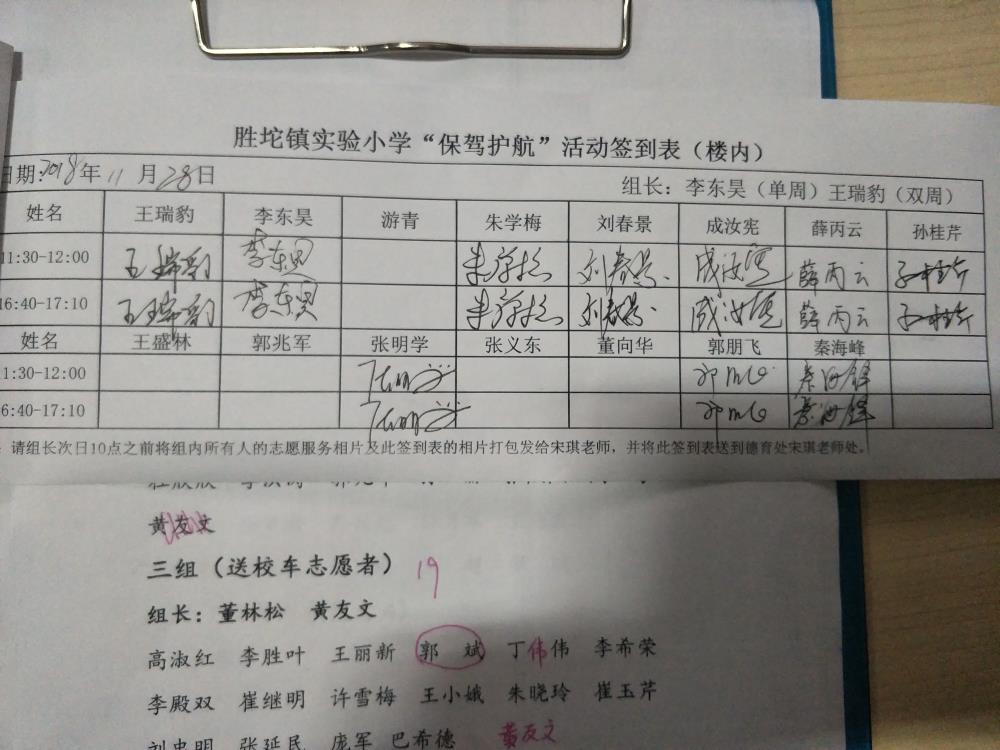 胜坨镇实验小学“保驾护航”活动签到表（楼内）
日期:2018年11月28日 组长：李东昊（单周）王瑞豹（双周）
姓名 王瑞豹 李东昊 游青 朱学梅 刘春景 成汝宪 薛丙云 孙桂芹
11:30-12:00 王瑞豹 李东昊 朱学梅 刘春景 成汝宪 薛丙云 孙桂芹
16:40-17:10 王瑞豹 李东昊 朱学梅 刘春景 成汝宪 薛丙云 孙桂芹
姓名 王盛林 郭兆军 张明学 张义东 董向华 郭朋飞 秦海峰
11:30-12:00 张明学 郭朋飞 秦海峰
16:40-17:10 张明学 郭朋飞 秦海峰
：请组长次日10点之前将组内所有人的志愿服务相片及此签到表的相片打包发给宋琪老师，并将此签到表送到德育处宋琪老师处。
黄友文
三组（送校车志愿者） 19
组长：董林松 黄友文
高淑红 李胜叶 王丽新 郭斌 丁伟伟 李希荣
李殿双 崔继明 许雪梅 王小娥 朱晓玲 崔玉芹
刘忠明 张延民 庞军 巴希德 黄友文